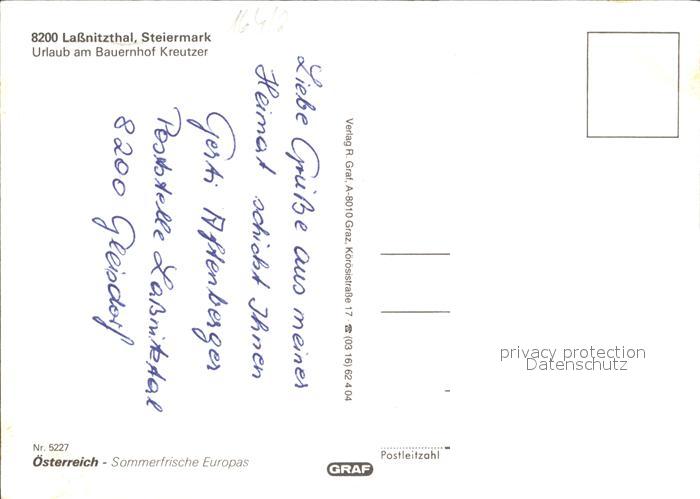 8200 Laßnitzthal, Steiermark
Urlaub am Bauernhof Kreutzer
Liebe Grüße aus meiner
Heimat schickt Ihnen
Gerti Aftenberger
Poststelle Laßnitztal
8200 Gleisdorf
Verlag R. Graf, A-8010 Graz, Körösistraße 17 · ☎ (03 16) 62 4 04
privacy protection
Datenschutz
Nr. 5227
Österreich - Sommerfrische Europas
GRAF
Postleitzahl